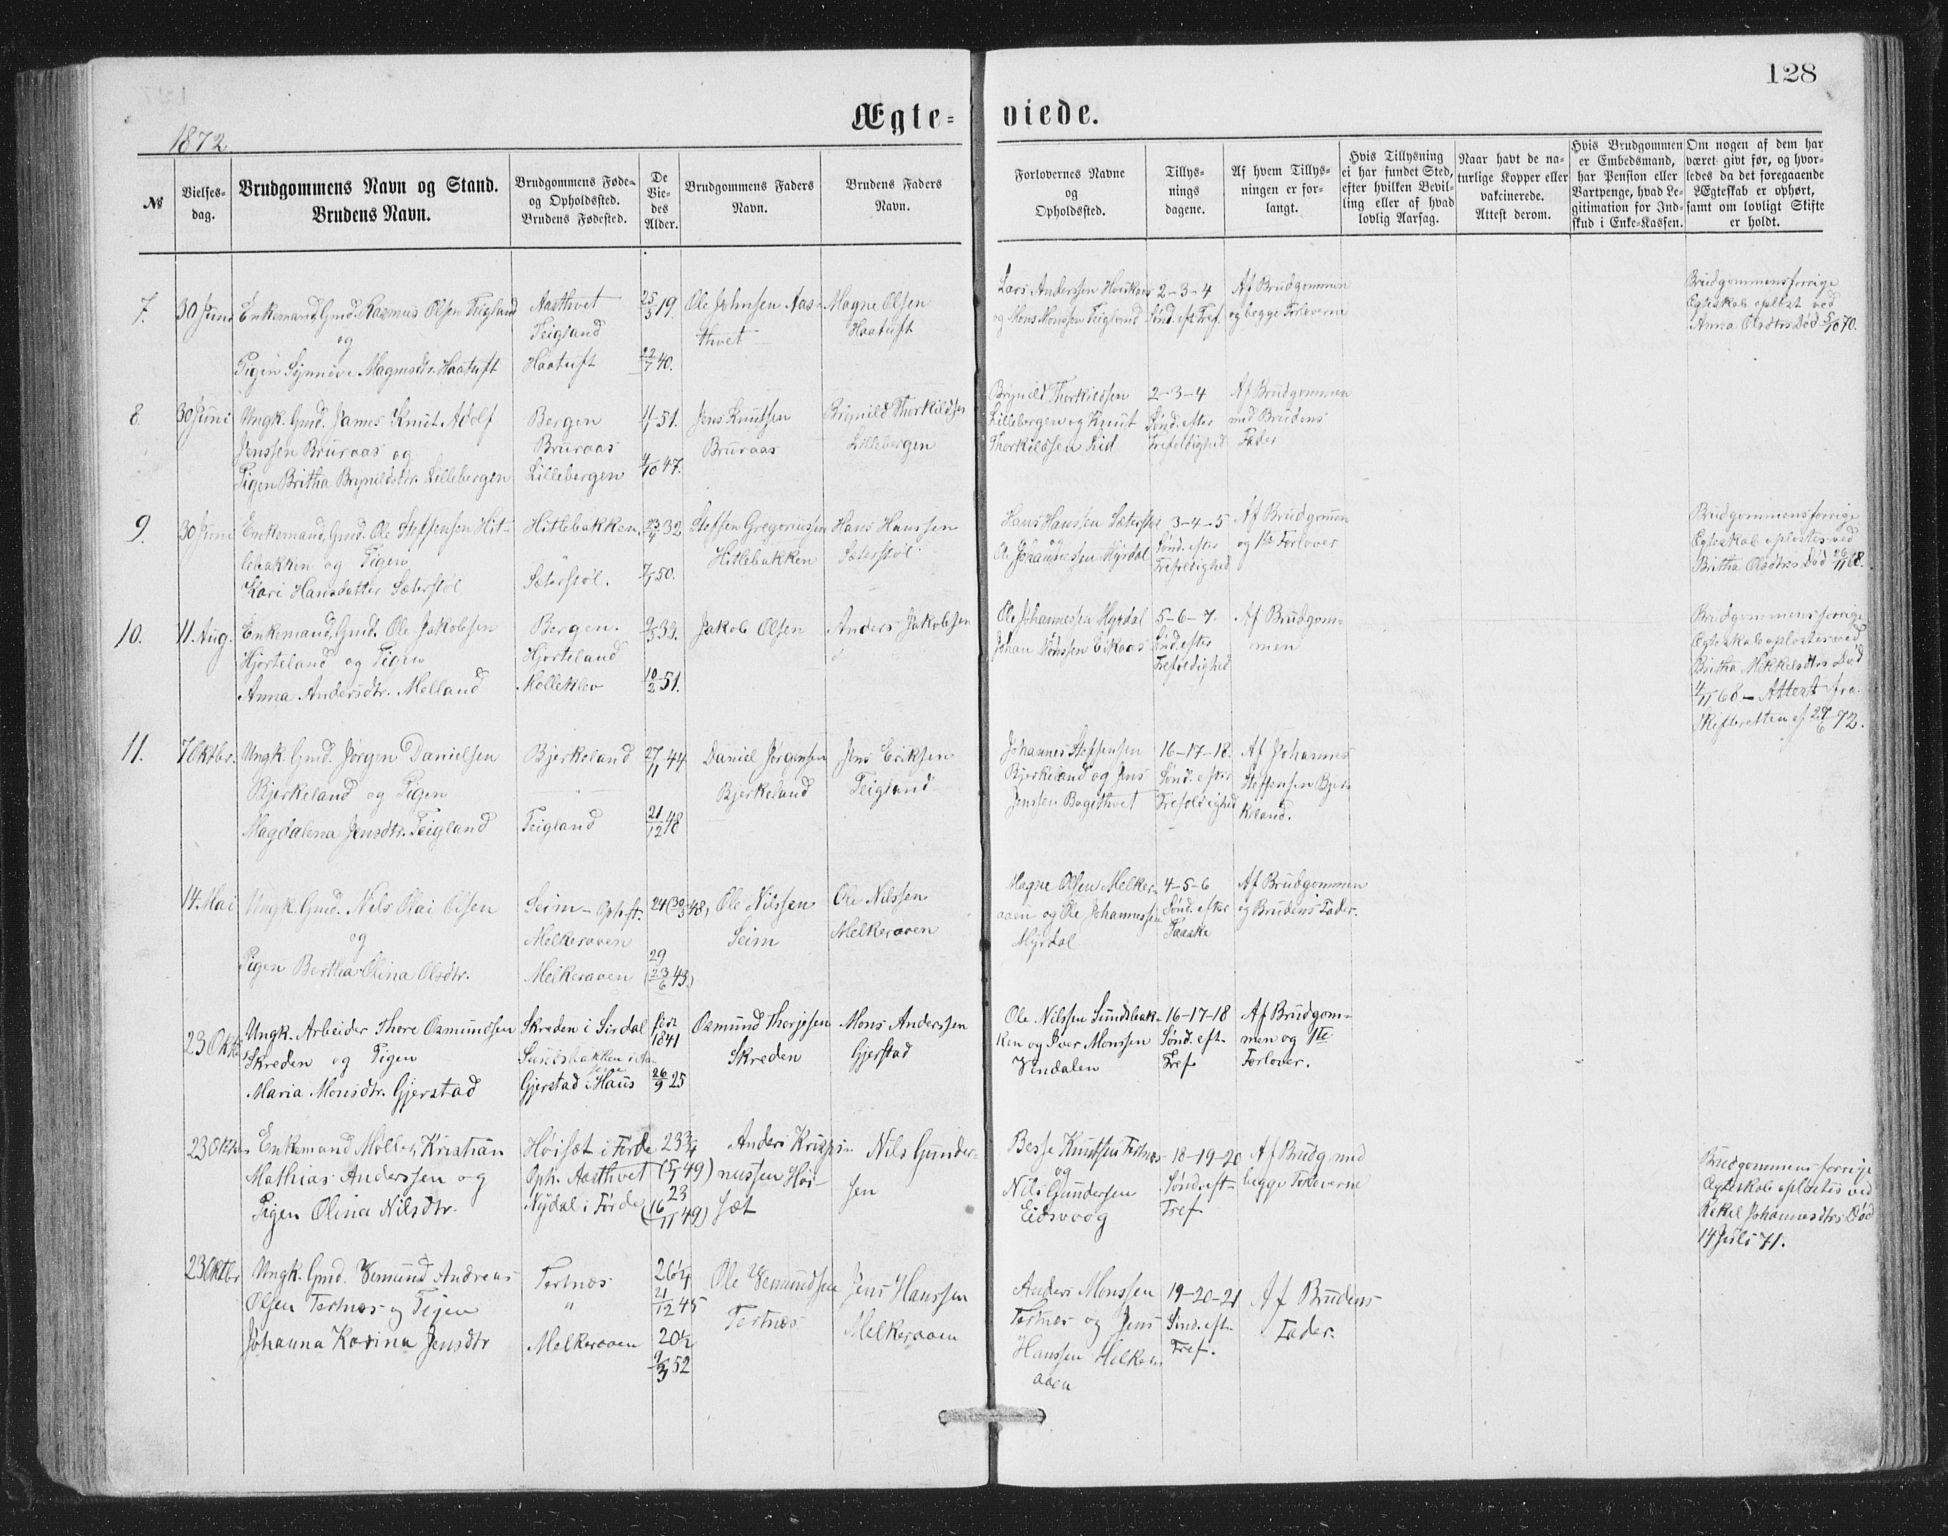 128
Ægte- viede.
1872
№
Vielses-
dag.
Brudgommens Navn og Stand.
Brudens Navn.
Brudgommens Føde-
og Opholdssted.
Brudens Fødested.
De
Vie-
des
Alder.
Brudgommens Faders
Navn.
Brudens Faders
Navn.
Forlovernes Navne
og
Opholdssted.
Tillys-
nings
dagene.
Af hvem Tillys-
ningen er for-
langt.
Hvis Tillysning
ei har fundet Sted,
efter hvilken Bevil-
ling eller af hvad
lovlig Aarsag.
Naar havt de na-
turlige Kopper eller
vakcinerede.
Attest derom.
Hvis Brudgommen
er Embedsmand,
har Pension eller
Vartpenge, hvad Le-
gitimation for Ind-
skud i Enke-Kassen.
Om nogen af dem har
været gift før, og hvor-
ledes da det foregaaende
Ægteskab er ophørt,
samt om lovligt Skifte
er holdt.
7. 30 Juni
Enkemand, Gmd. Rasmus Olsen Teigland
og
Pigen Synneve Magnesdtr. Haatuft
Aasthvet
Teigland
Haatuft
25/5 19
22/7 40.
Ole Johnsen Aas-
thvet
Magne Olsen
Haatuft
Lars Anderssen
og Mons Monssen Teigland
2-3-4
Sønd. eft Tref.
Af Brudgommen
og begge Forloverne
Brudgommens forrige
Egteskab opløst ved
Anna Olsdtrs Død 5/10 70.
8. 30 Juni
Ungk. Gmd. James Knut Adolf
Jenssen Bruraas og
Pigen Britha Brynildsdtr. Lillebergen
Bergen
Bruraas
Lillebergen
51.
4/10 47.
Jens Knutsen
Bruraas
Brynild Thorkildsen
Lillebergen
Brynild Thorkildsen
Lillebergen og Knut
Thorkildsen Lid
2-3-4
Sønd. efter
Trefoldighed
Af Brudgommen
med Brudens
Fader
9. 30 Juni
Enkemand, Gmd. Ole Steffensen Hit-
lebakken og Pigen
Kari Hansdatter Sæterstøl
Hitlebakken.
"
Sæterstøl.
23/4 32
50.
Steffen Gregoriussen
Hitlebakken
Hans Hanssen
Sæterstøl
Hans Hanssen Sæterstøl
og
Ole Johannessen Myrdal
3-4-5
Sønd. efter
Trefoldighed
Af Brudgommen
og 1te Forlover
Brudgommens forrige
Egteskab opløstes ved
Britha Olsdtrs Død 26/11 68.
10. 11 Aug.
Enkemand, Gmd. Ole Jakobsen
Hjorteland og Pigen
Anna Andersdtr. Melland
Bergen.
Hjorteland
Mølleklev
9/5 33.
10/2 51.
Jakob Olsen
Anders Jakobsen
Ole Johannessen Myrdal
Johan Monssen Eikaas
5-6-7.
Sønd. efter
Trefoldighed
Af Brudgom-
men
Brudgommens forrige
Egteskab opløstes ved
Britha Mikkelsdtrs Død
4/11 68 - Attest fra
Skifteretten af 27/6 72.
11. 7 Oktbr.
Ungk. Gmd. Jørgen Danielsen
Bjerkeland og Pigen
Magdalena Jensdtr. Teigland
Bjerkeland
"
Teigland
27/11 44
21/12 48
Daniel Jørgensen
Bjerkeland
Jens Eriksen
Teigland
Johannes Steffensen
Bjerkeland og Jens
Jenssen Bogethvet
16-17-18.
Sønd. efter
Trefoldighed
Af Johannes
Steffensen Bjer-
keland.
14. Mai
Ungk. Gmd. Nils Olai Olsen
og
Pigen Bertha Olina Olsdtr.
Seim - Oph.st.
Melkeraaen
Melkeraaen
24 (30/5 48)
29
(23/6 43)
Ole Nilssen
Seim
Ole Nilssen
Melkeraaen
Magne Olsen Melker-
aaen og Ole Johannessen
Myrdal
4-5-6
Sønd. efter
Paaske
Af Brudgommen
og Brudens Fader.
23 Oktbr
Ungk. Arbeider Thore Osmundsen
Skreden og Pigen
Maria Monsdtr. Gjerstad
Skreden i Sirdal
Gjerstad i Haus
født
1841
26/9 25
Osmund Thorjssen
Skreden
Mons Anderssen
Gjerstad
Ole Nilssen Sundsbak-
ken og Iver Monssen
Vendalen
16-17-18
Sønd. eft-
Tref
Af Brudgom-
men og 1te
Forlover.
23 Oktbr
Enkemand Møller, Kristian
Mathias Anderssen og
Pigen Olina Nilsdtr.
Høisæt i Førde
Oph. Aasthvet
Nydal i Førde
23 3/4
49)
23
(16/11 49)
Anders Krispi-
nussen Høi-
sæt
Nils Gunder-
sen
Besse Knutsen Tertnæs
og
Nils Gundersen
Eidsvaag
18-19-20
Sønd. eft-
Tref
Af Brudg. med
begge Forloverne
Brudgommens forrige
Egteskab opløstes ved
Rekel Johannesdtrs Død
14 Juli 71.
23 Oktbr
Ungk. Gmd. Vemund Andreas
Olsen Tertnæs og Pigen
Johanna Karina Jensdtr
Tertnæs
"
Melkeraaen
26 3/4
21/12 45
20 1/2
9/3 52
Ole Vemundsen
Tertnæs
Jens Hanssen
Melkeraaen
Anders Monssen
Tertnes og Jens
Hanssen Melker-
aaen
19-20-21
Sønd. eft-
Tref.
Af Brudens
Fader.